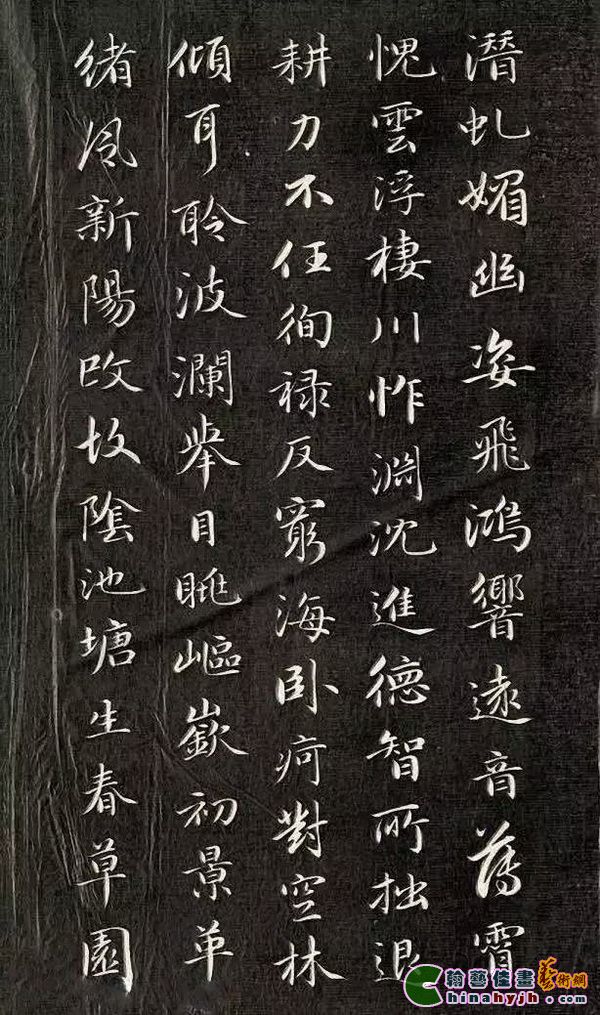 潛虬媚幽姿飛鴻響遠音薄霄
愧雲浮棲川怍淵沈進德智所拙退
耕力不任徇祿反窮海卧痾對空林
傾耳聆波瀾舉目眺嶇嶔初景革
緒風新陽改故陰池塘生春草園
翰藝佳畫藝術網
Chinahyjh.com